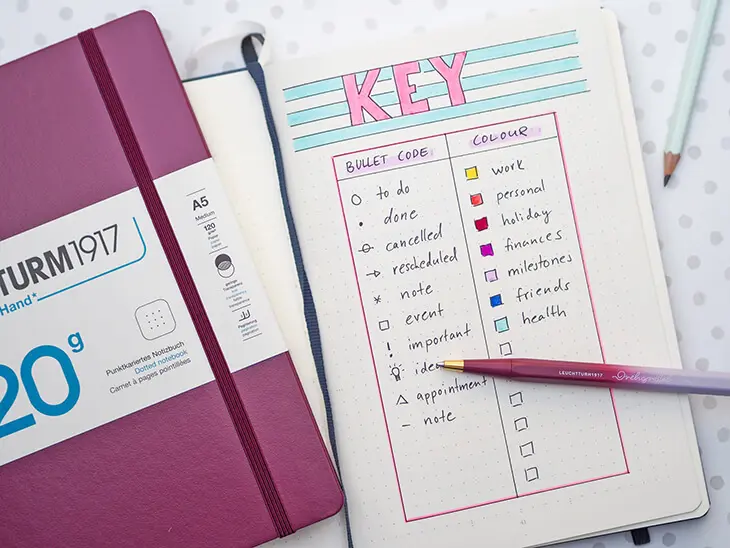 TURM1917
Hand*
20g
A5
Medium
120
Punktkariertes Notizbuch
Dotted notebook
Carnet à pages pointillées
KEY
BULLET CODE
COLOUR
to do
done
cancelled
rescheduled
note
event
important
idea
appointment
note
work
personal
holiday
finances
milestones
friends
health
LEUCHTTURM1917